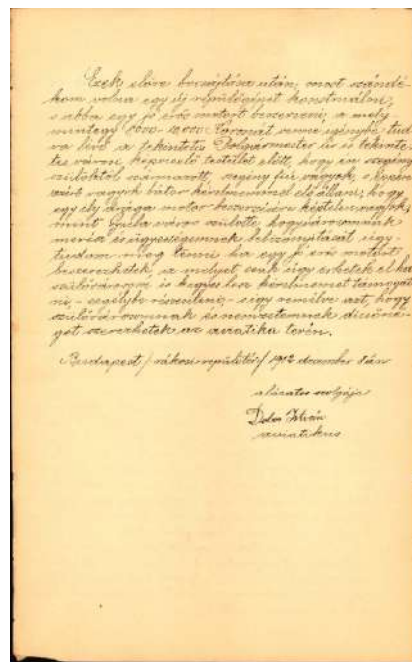 Ezek előre bocsájtása után, most szándé-
kom volna egy új repülőgépet konstruálni,
s abba egy jó erős motort beszerezni, a mely
mintegy 8000-10000 koronát venne igénybe tud-
va lévő a tekintetes Polgármester úr és tekinte-
tes városi képviselő testület előtt, hogy én szegény
szülőktől származott, szegény fiú vagyok,
azért vagyok bátor kérelmemmel elő állani, hogy
egy ily drága motor beszerzésére képtelen vagyok,
mint Gyula város szülötte hogy városomnak
és ügyességemnek bebizonyítását úgy
tudom meg tenni ha egy jó erős motort
beszerezhetek, a melyet csak úgy érhetek el ha
szülővárosom is kegyes lesz kérelmemet támogat-
ni, - segélybe részesíteni, - s így remélve azt, hogy
szülővárosomnak és nemzetemnek dicsősé-
get szerezhetek az aviatika terén.
Budapest / rákosi repülőtér / 1912 dezember án
alázatos szolgája
Dobos István
aviatikus